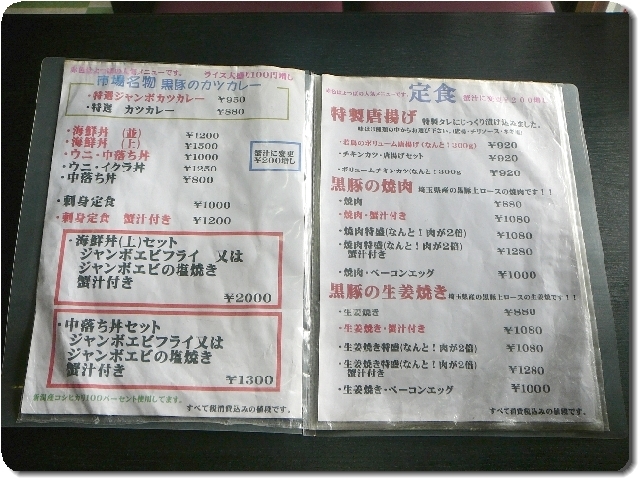 人気メニューです。 ライス大盛り100円増し
市場名物 黒豚のカツカレー
・特選ジャンボカツカレー ¥950
・特選 カツカレー ¥880
・海鮮丼 (並) ¥1200
・海鮮丼 (上) ¥1500
・ウニ・中落ち丼 ¥1000
・ウニ・イクラ丼 ¥1250
・中落ち丼 ¥800
蟹汁に変更
¥200増し
・刺身定食 ¥1000
・刺身定食 蟹汁付き ¥1200
・海鮮丼(上)セット
ジャンボエビフライ 又は
ジャンボエビの塩焼き
蟹汁付き
¥2000
・中落ち丼セット
ジャンボエビフライ又は
ジャンボエビの塩焼き
蟹汁付き
¥1300
新潟産コシヒカリ100パーセント使用してます。
すべて税消費込みの値段です。
人気メニューです 定食 蟹汁に変更¥200増し
特製唐揚げ 特製タレにじっくり漬け込みました。
味は3種類の中からお選び下さい。
・若鳥のボリューム唐揚げ(なんと!300g) ¥920
・チキンカツ・唐揚げセット ¥920
・ボリュームチキンカツ(なんと!300g) ¥920
黒豚の焼肉 埼玉県産の黒豚上ロースの焼肉です!!
・焼肉 ¥880
・焼肉・蟹汁付き ¥1080
・焼肉特盛(なんと!肉が2倍) ¥1080
・焼肉特盛(なんと!肉が2倍)
蟹汁付き ¥1280
・焼肉・ベーコンエッグ ¥1000
黒豚の生姜焼き 埼玉県産の黒豚上ロースの生姜焼です!!
・生姜焼き ¥880
・生姜焼き・蟹汁付き ¥1080
・生姜焼き特盛(なんと!肉が2倍) ¥1080
・生姜焼き特盛(なんと!肉が2倍)
蟹汁付き ¥1280
・生姜焼き・ベーコンエッグ ¥1000
すべて消費税込みの値段です。